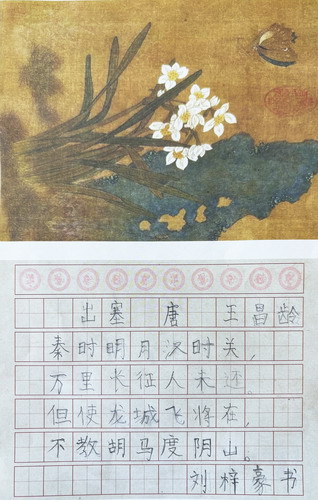 出塞 唐 王昌龄
秦时明月汉时关，
万里长征人未还。
但使龙城飞将在，
不教胡马度阴山。
刘梓豪书